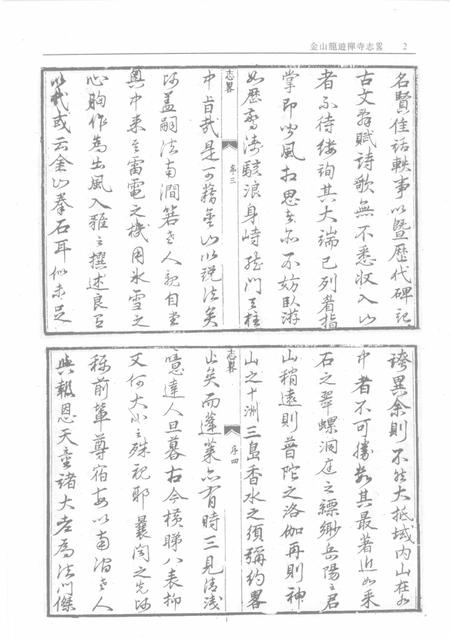 金山龍遊禪寺志畧 2
名賢佳話軼事以暨歷代碑記
古文辭賦詩歌無不悉收入山
者不待縷詢其大端已列眉指
掌即心風拉思者亦不妨臥游
如歷驚濤駭浪身峙龍門天柱
志畧
序三
中旨哉是可獨金山以說法矣
師蓋嗣法南澗箬老人親自堂
奧中來之雷電之機用氷雪之
心胸作為出風入雅之撰述良有
以哉或云金山拳石耳似未足
誇異余則不然大抵域内山在水
中者不可僂數其最著近如采
石之翠螺洞庭之縹緲岳陽之君
山稍遠則普陀之洛伽再則神
山之十洲三島香水之須彌約畧
志畧
序四
止矣而蓬萊亦有時三見清淺
噫達人旦暮古今橫睇八表抑
又何大小之殊視耶曩聞之先師
稱前輩尊宿每以南澗老人
與報恩天童諸大老為法門傑